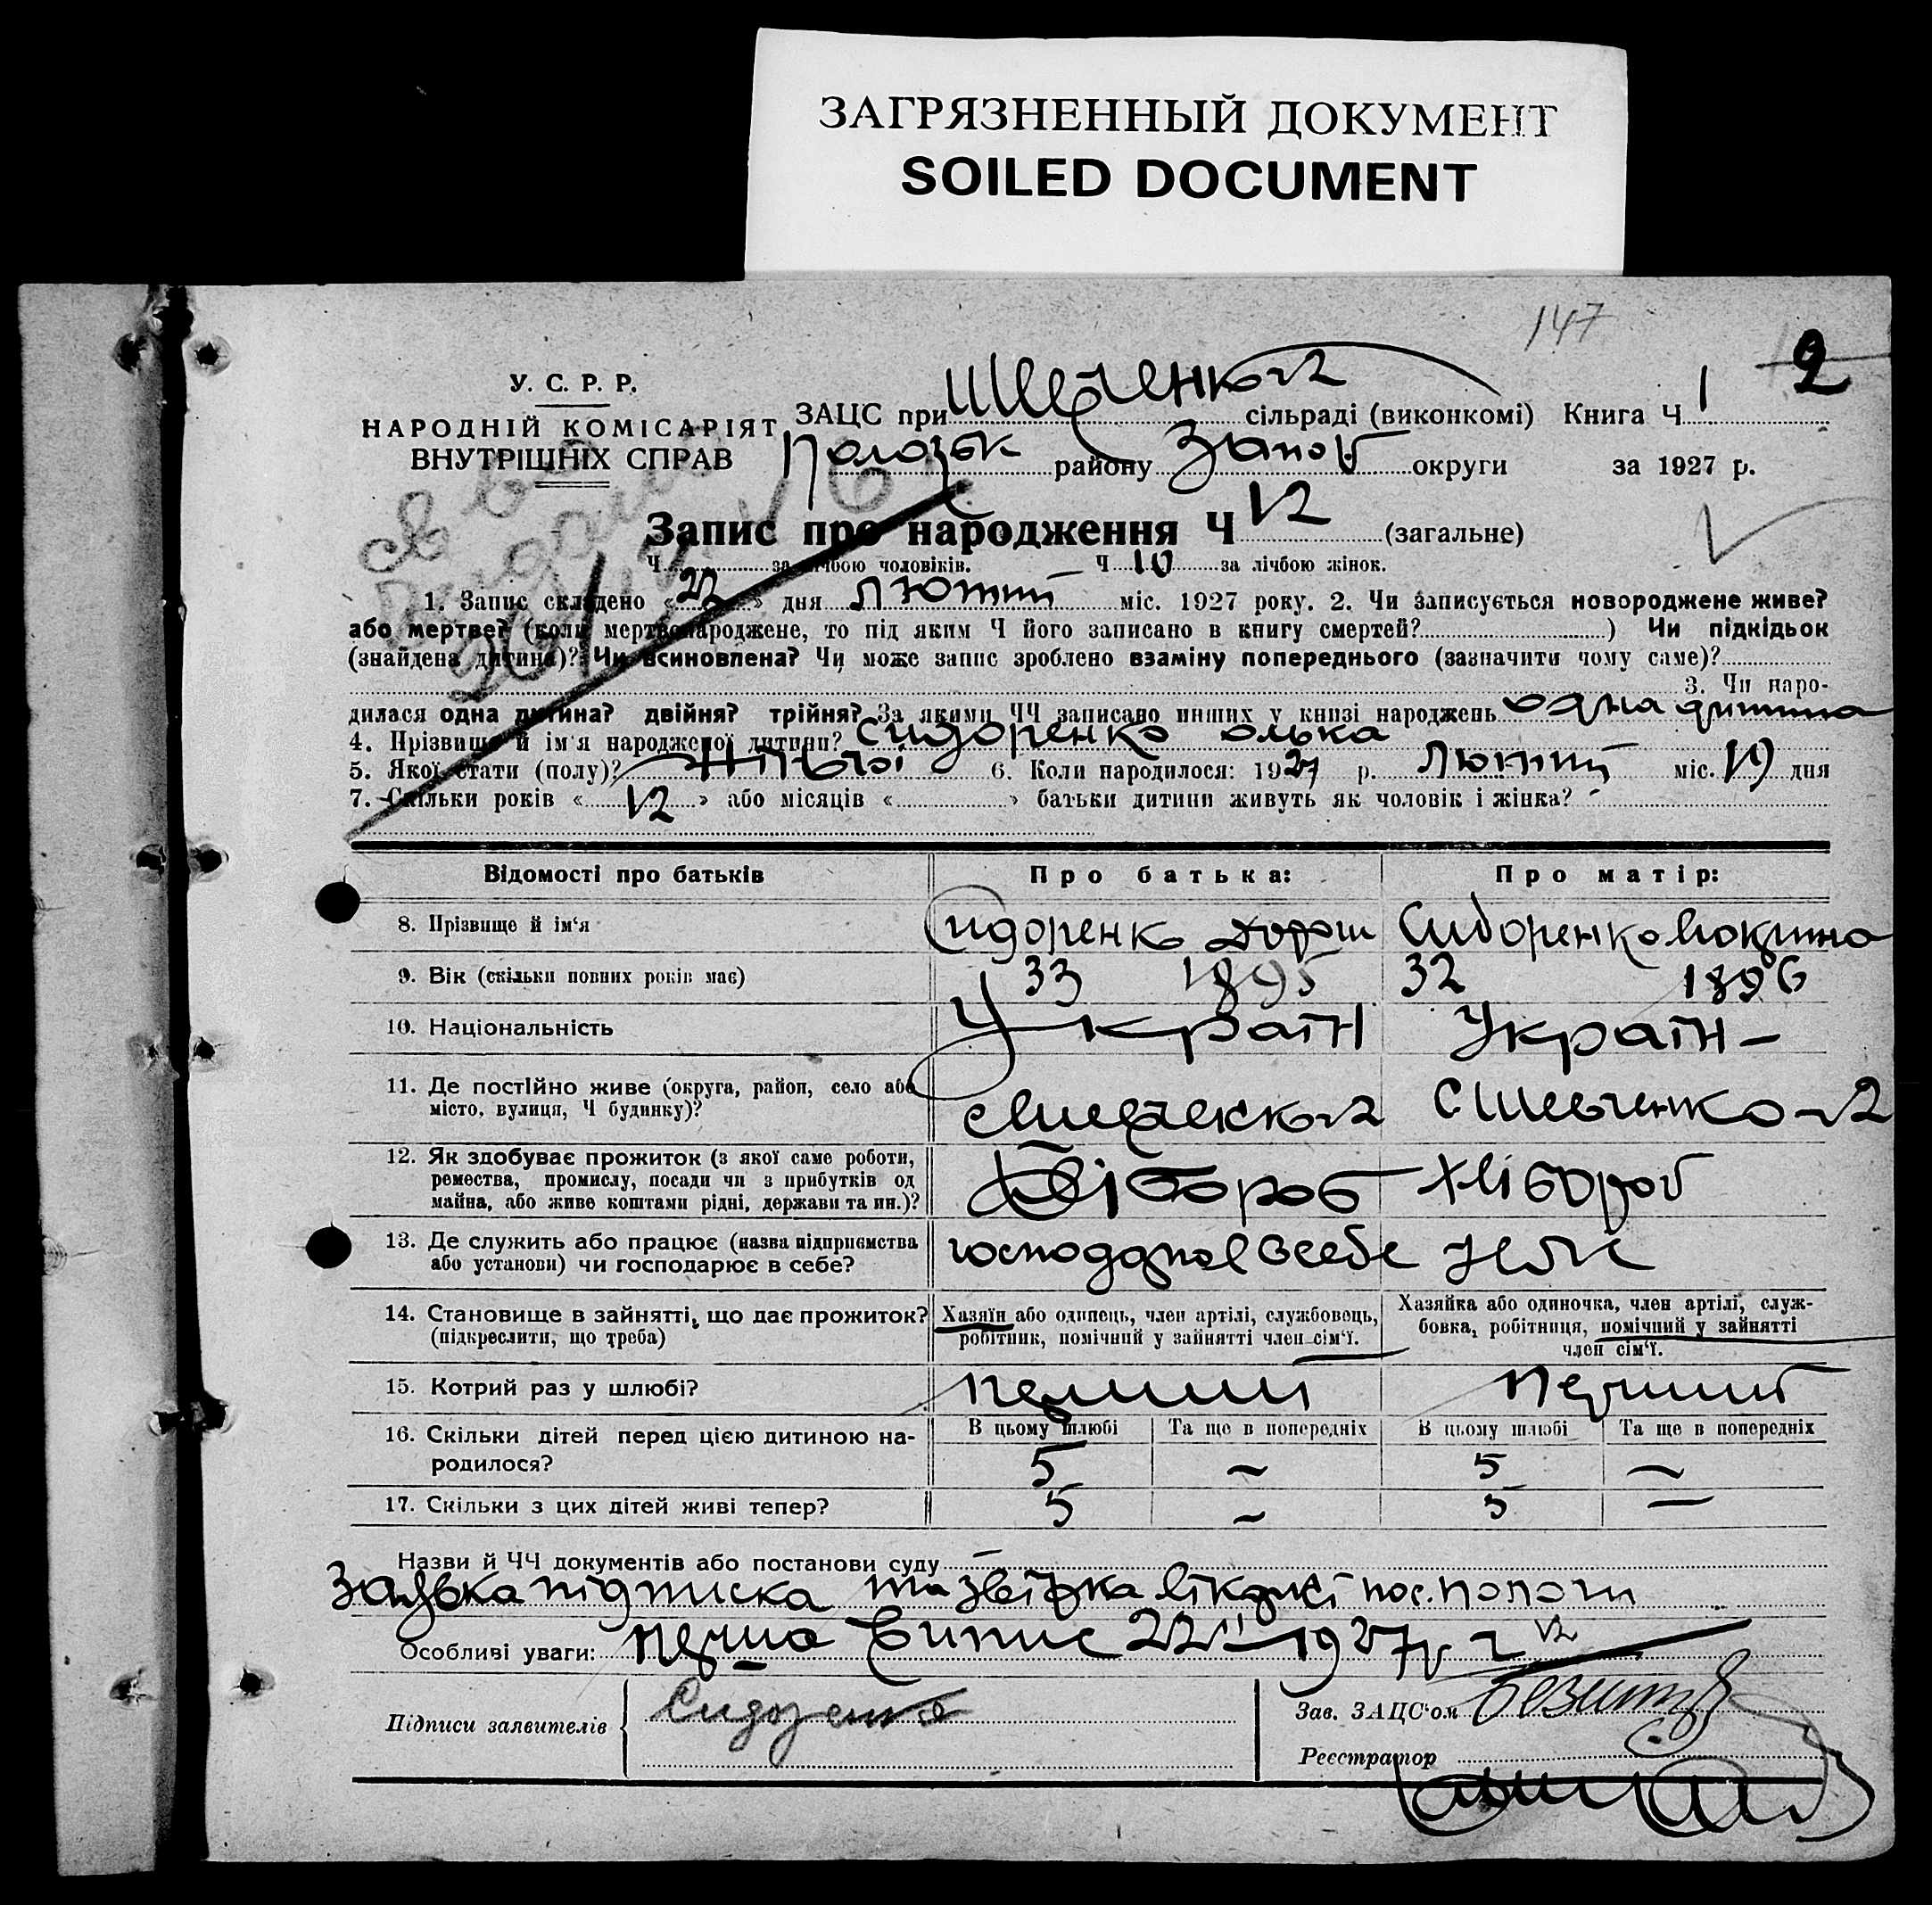 ЗАГРЯЗНЕННЫЙ ДОКУМЕНТ
SOILED DOCUMENT
147
2
У. С. Р. Р.
НАРОДНІЙ КОМІСАРІЯТ
ВНУТРІШНІХ СПРАВ
ЗАЦС при сільраді (виконкомі) Книга Ч 1
району округи за 1927 р.
Запис про народження Ч 12 (загальне)
Ч за лічбою чоловіків. Ч 10 за лічбою жінок.
1. Запис складено « 22 » дня Лютий міс. 1927 року. 2. Чи записується новороджене живе?
або мертве? (коли мертвонароджене, то під яким Ч його записано в книгу смертей? ) Чи підкідьок
(знайдена дитина)? Чи всиновлена? Чи може запис зроблено взаміну попереднього (зазначити чому саме)?
3. Чи наро-
дилася одна дитина? двійня? трійня? За якими ЧЧ записано инших у книзі народжень одна дитина
4. Прізвище й ім'я народженої дитини? Сидоренко Олька
5. Якої стати (полу)? Жіночої 6. Коли народилося: 1927 р. Лютий міс. 19 дня
7. Скільки років « 12 » або місяців « » батьки дитини живуть як чоловік і жінка?
Відомості про батьків Про батька: Про матір:
8. Прізвище й ім'я Сидоренко Дорош Сидоренко
9. Вік (скільки повних років має) 33 1895 32 1896
10. Національність Україн Україн-
11. Де постійно живе (округа, район, село або
місто, вулиця, Ч будинку)? с Шевченко
12. Як здобуває прожиток (з якої саме роботи,
ремества, промислу, посади чи з прибутків од
майна, або живе коштами рідні, держави та ин.)? Хлібороб Хлібороб
13. Де служить або працює (назва підприємства
або установи) чи господарює в себе? в себе
14. Становище в зайнятті, що дає прожиток?
(підкреслити, що треба)
Хазяїн або одинець, член артілі, службовець,
робітник, помічний у зайнятті член сім'ї.
Хазяйка або одиночка, член артілі, служ-
бовка, робітниця, помічний у зайнятті
член сім'ї.
15. Котрий раз у шлюбі? перший перший
16. Скільки дітей перед цією дитиною на-
родилося?
В цьому шлюбі Та ще в попередніх В цьому шлюбі Та ще в попередніх
5 – 5 –
17. Скільки з цих дітей живі тепер? 5 – 5 –
Назви й ЧЧ документів або постанови суду –
Заявка підписка та
Особливі уваги: перша Випис 22 II 1927 р 12
Підписи заявителів Сидоренко
Зав. ЗАЦС'ом
Реєстратор